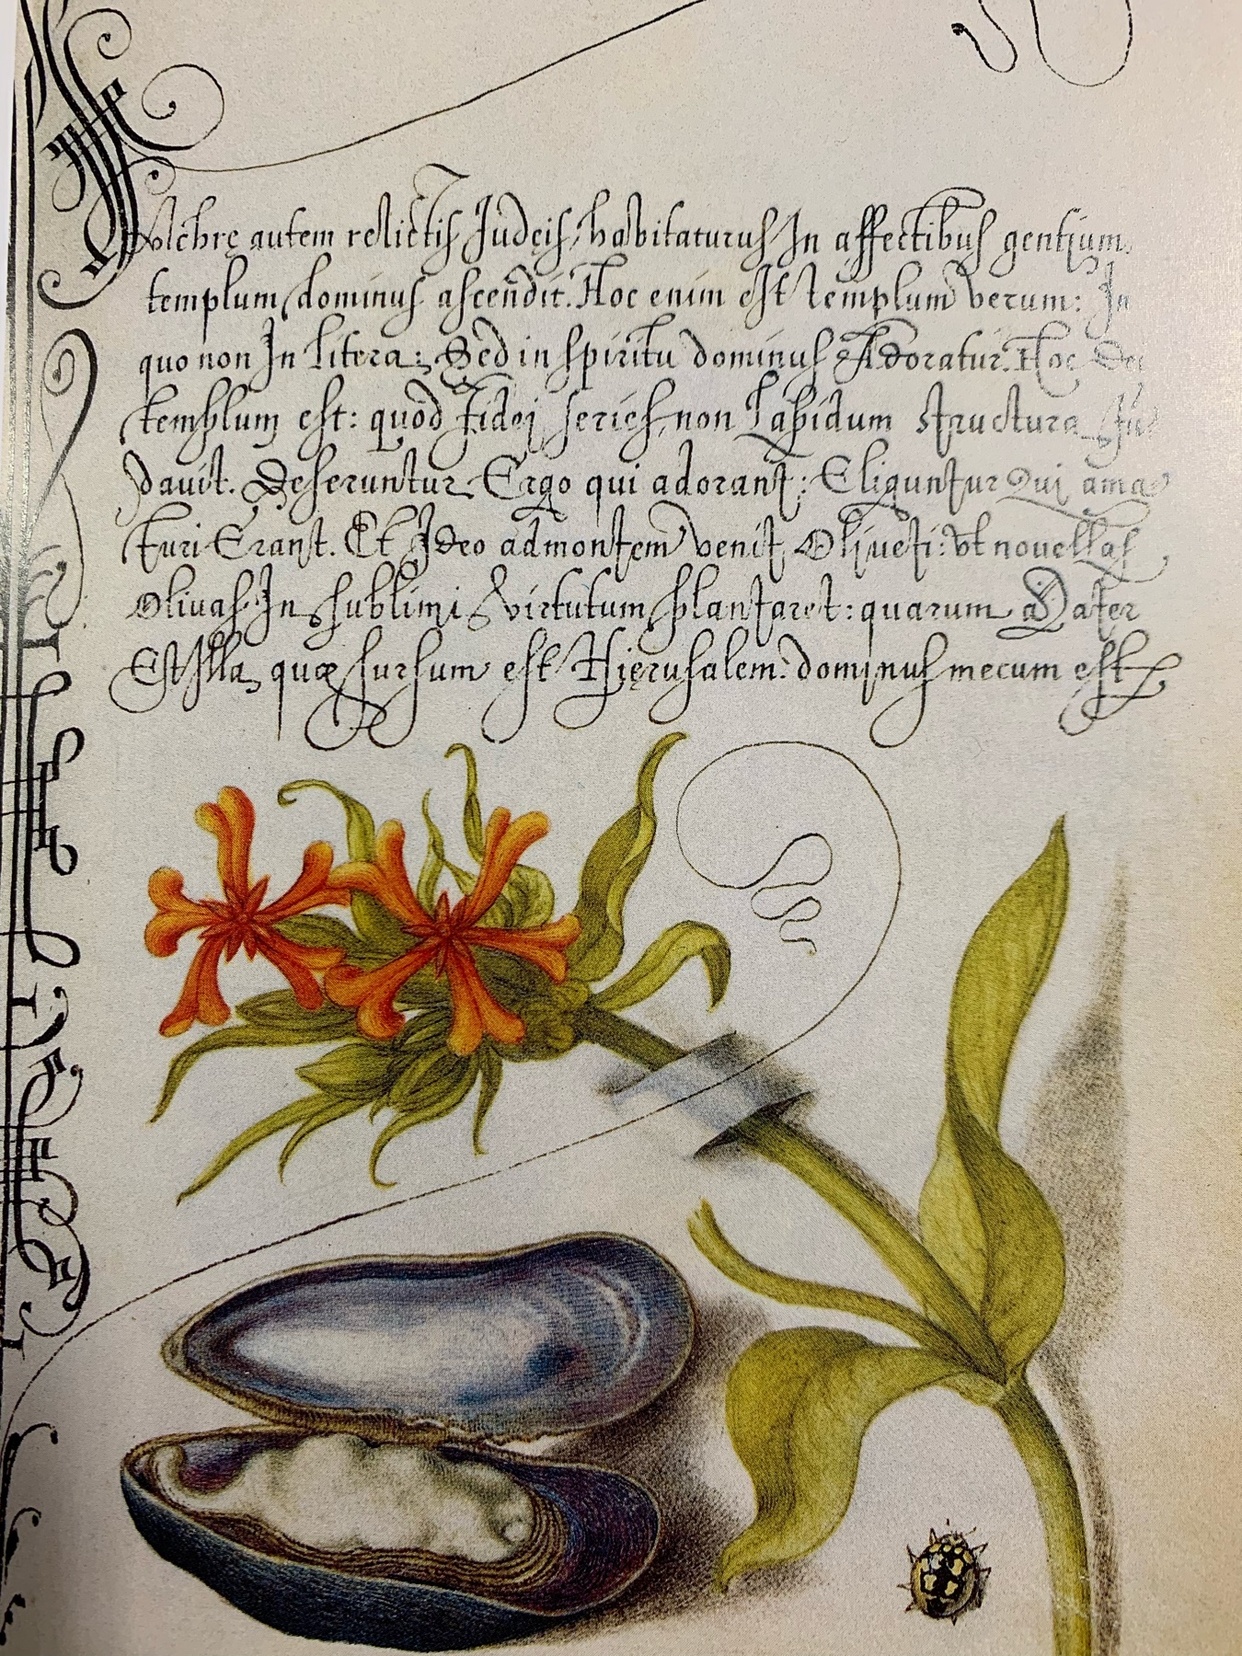 Pulchre autem relictis Judeis, habitaturus In affectibus gentium
templum dominus ascendit. Hoc enim est templum verum: In
quo non In litera: Sed in spiritu dominus Adoratur. Hoc Dei
templum est: quod Fidei series, non Lapidum structura
Dauit. Deseruntur Ergo qui adorant: Eliguntur Qui ama
turi Erant. Et Ideo ad montem venit Oliueti: vt nouellas
Oliuas In sublimi Virtutum plantaret: quarum Mater
Est Illa, quæ sursum est Hierusalem. dominus mecum est